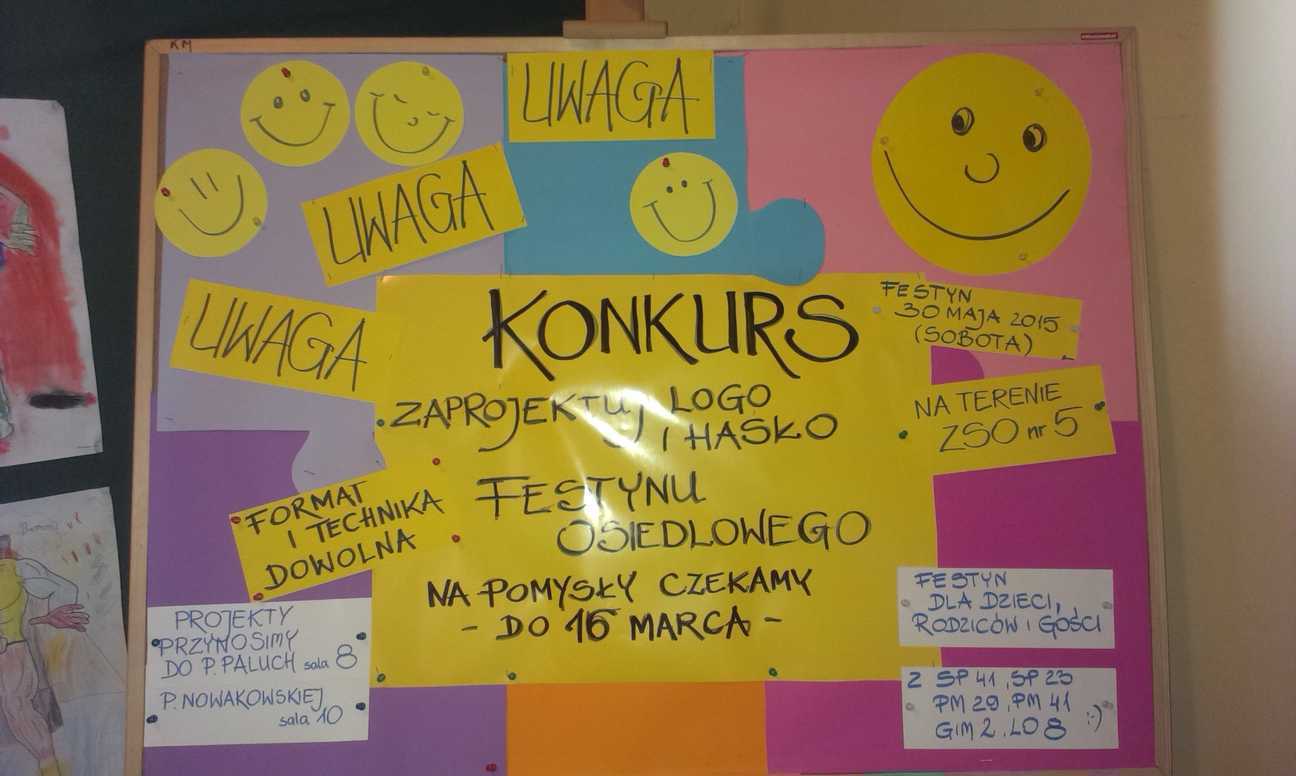 KM
UWAGA
UWAGA
UWAGA
KONKURS
ZAPROJEKTUJ LOGO
I HASŁO
FESTYNU
OSIEDLOWEGO
NA POMYSŁY CZEKAMY
- DO 16 MARCA -
FESTYN
30 MAJA 2015
(SOBOTA)
NA TERENIE
ZSO nr 5
FORMAT
I TECHNIKA
DOWOLNA
PROJEKTY
PRZYNOSIMY
DO P. PALUCH sala 8
P. NOWAKOWSKIEJ
sala 10
FESTYN
DLA DZIECI,
RODZICÓW I GOŚCI
Z SP 41, SP 23
PM 29, PM 41
GIM 2, LO 8 :-)